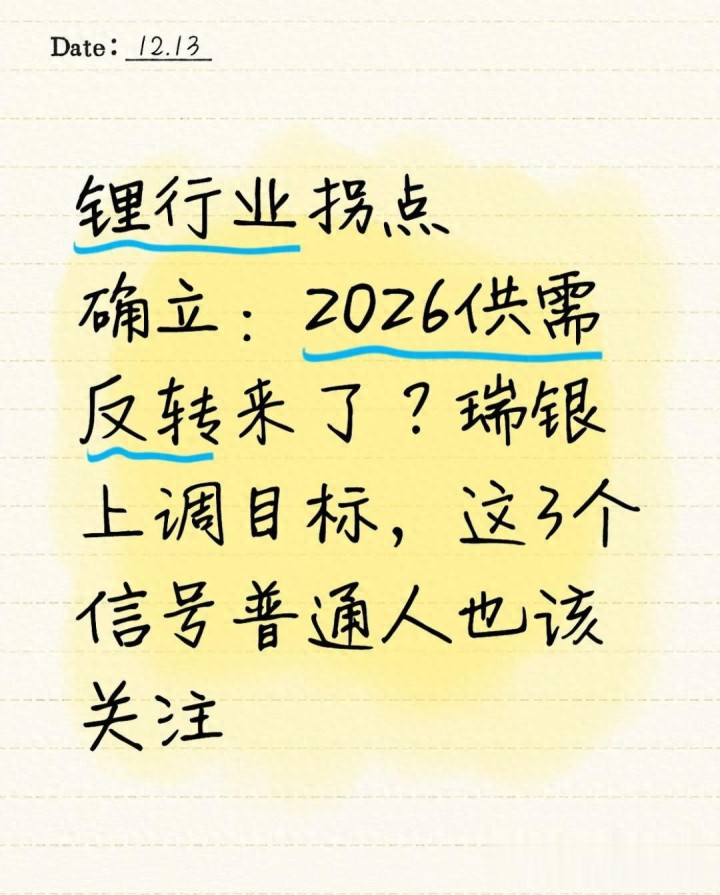 Date: 12.13
锂行业拐点
确立：2026供需
反转来了？瑞银
上调目标，这3个
信号普通人也该
关注